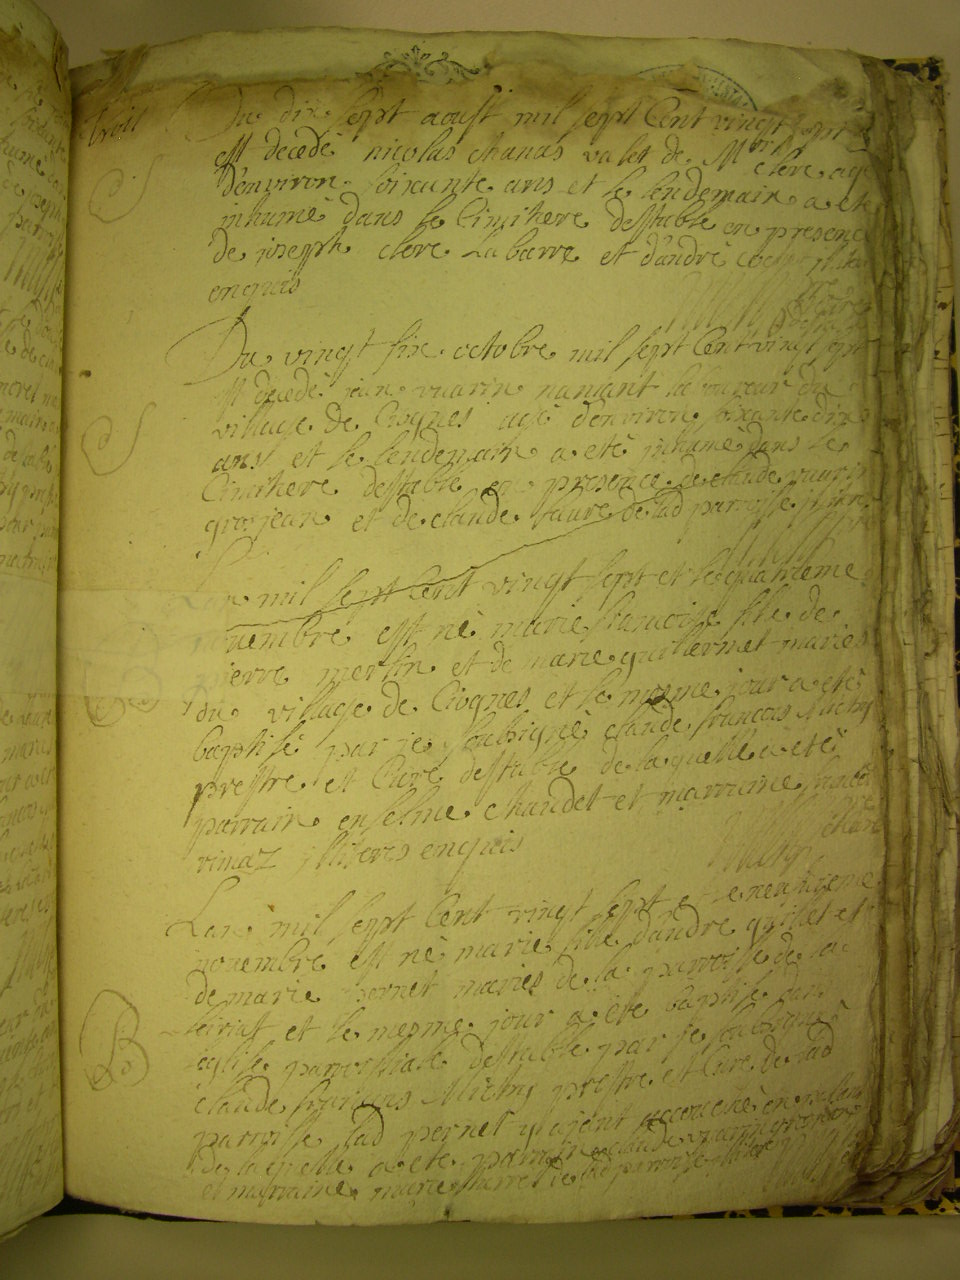 Du dix sept aoust mil sept Cent vingt sept
est decedé nicolas chanas valet de Mr clere age
d'environ soixante ans et le lendemain a ete
inhumé dans le Cimitiere destable en presence
de joseph clere Labarre et d'andré
enquis
Du vingt six octobre mil sept Cent vingt sept
est decedé jean vuarin nanant laboureur du
village de Ciognes agé d'environ soixante dix
ans et le lendemain a eté inhumé dans le
Cimitiere destable en presence de claude vuarin
grosjean et de claude faure de lad parroisse
Lan mil sept Cent vingt sept et le quatrieme
novembre est né marie françoise fille de
pierre merlin et de marie guillermet mariés
du village de Ciognes et le mesme jour a eté
baptisé par je soubsigné claude françois Michy
prestre et Curé destable de laquelle a eté
parrain enselme chaudet et marraine
vinaz illiteres enquis
Lan mil sept Cent vingt sept et le neufvieme
novembre est né marie fille d'andré guillet et
de marie pernet mariés de la parroisse de la
et le mesme jour a eté baptisé dans
eglise parroissiale destable par je soubsigné
claude françois Michy prestre et Curé de lad
parroisse lad pernet ayant accouché en
de laquelle a eté parrain claude vuarin grosjean
et marraine marie de lad parroisse